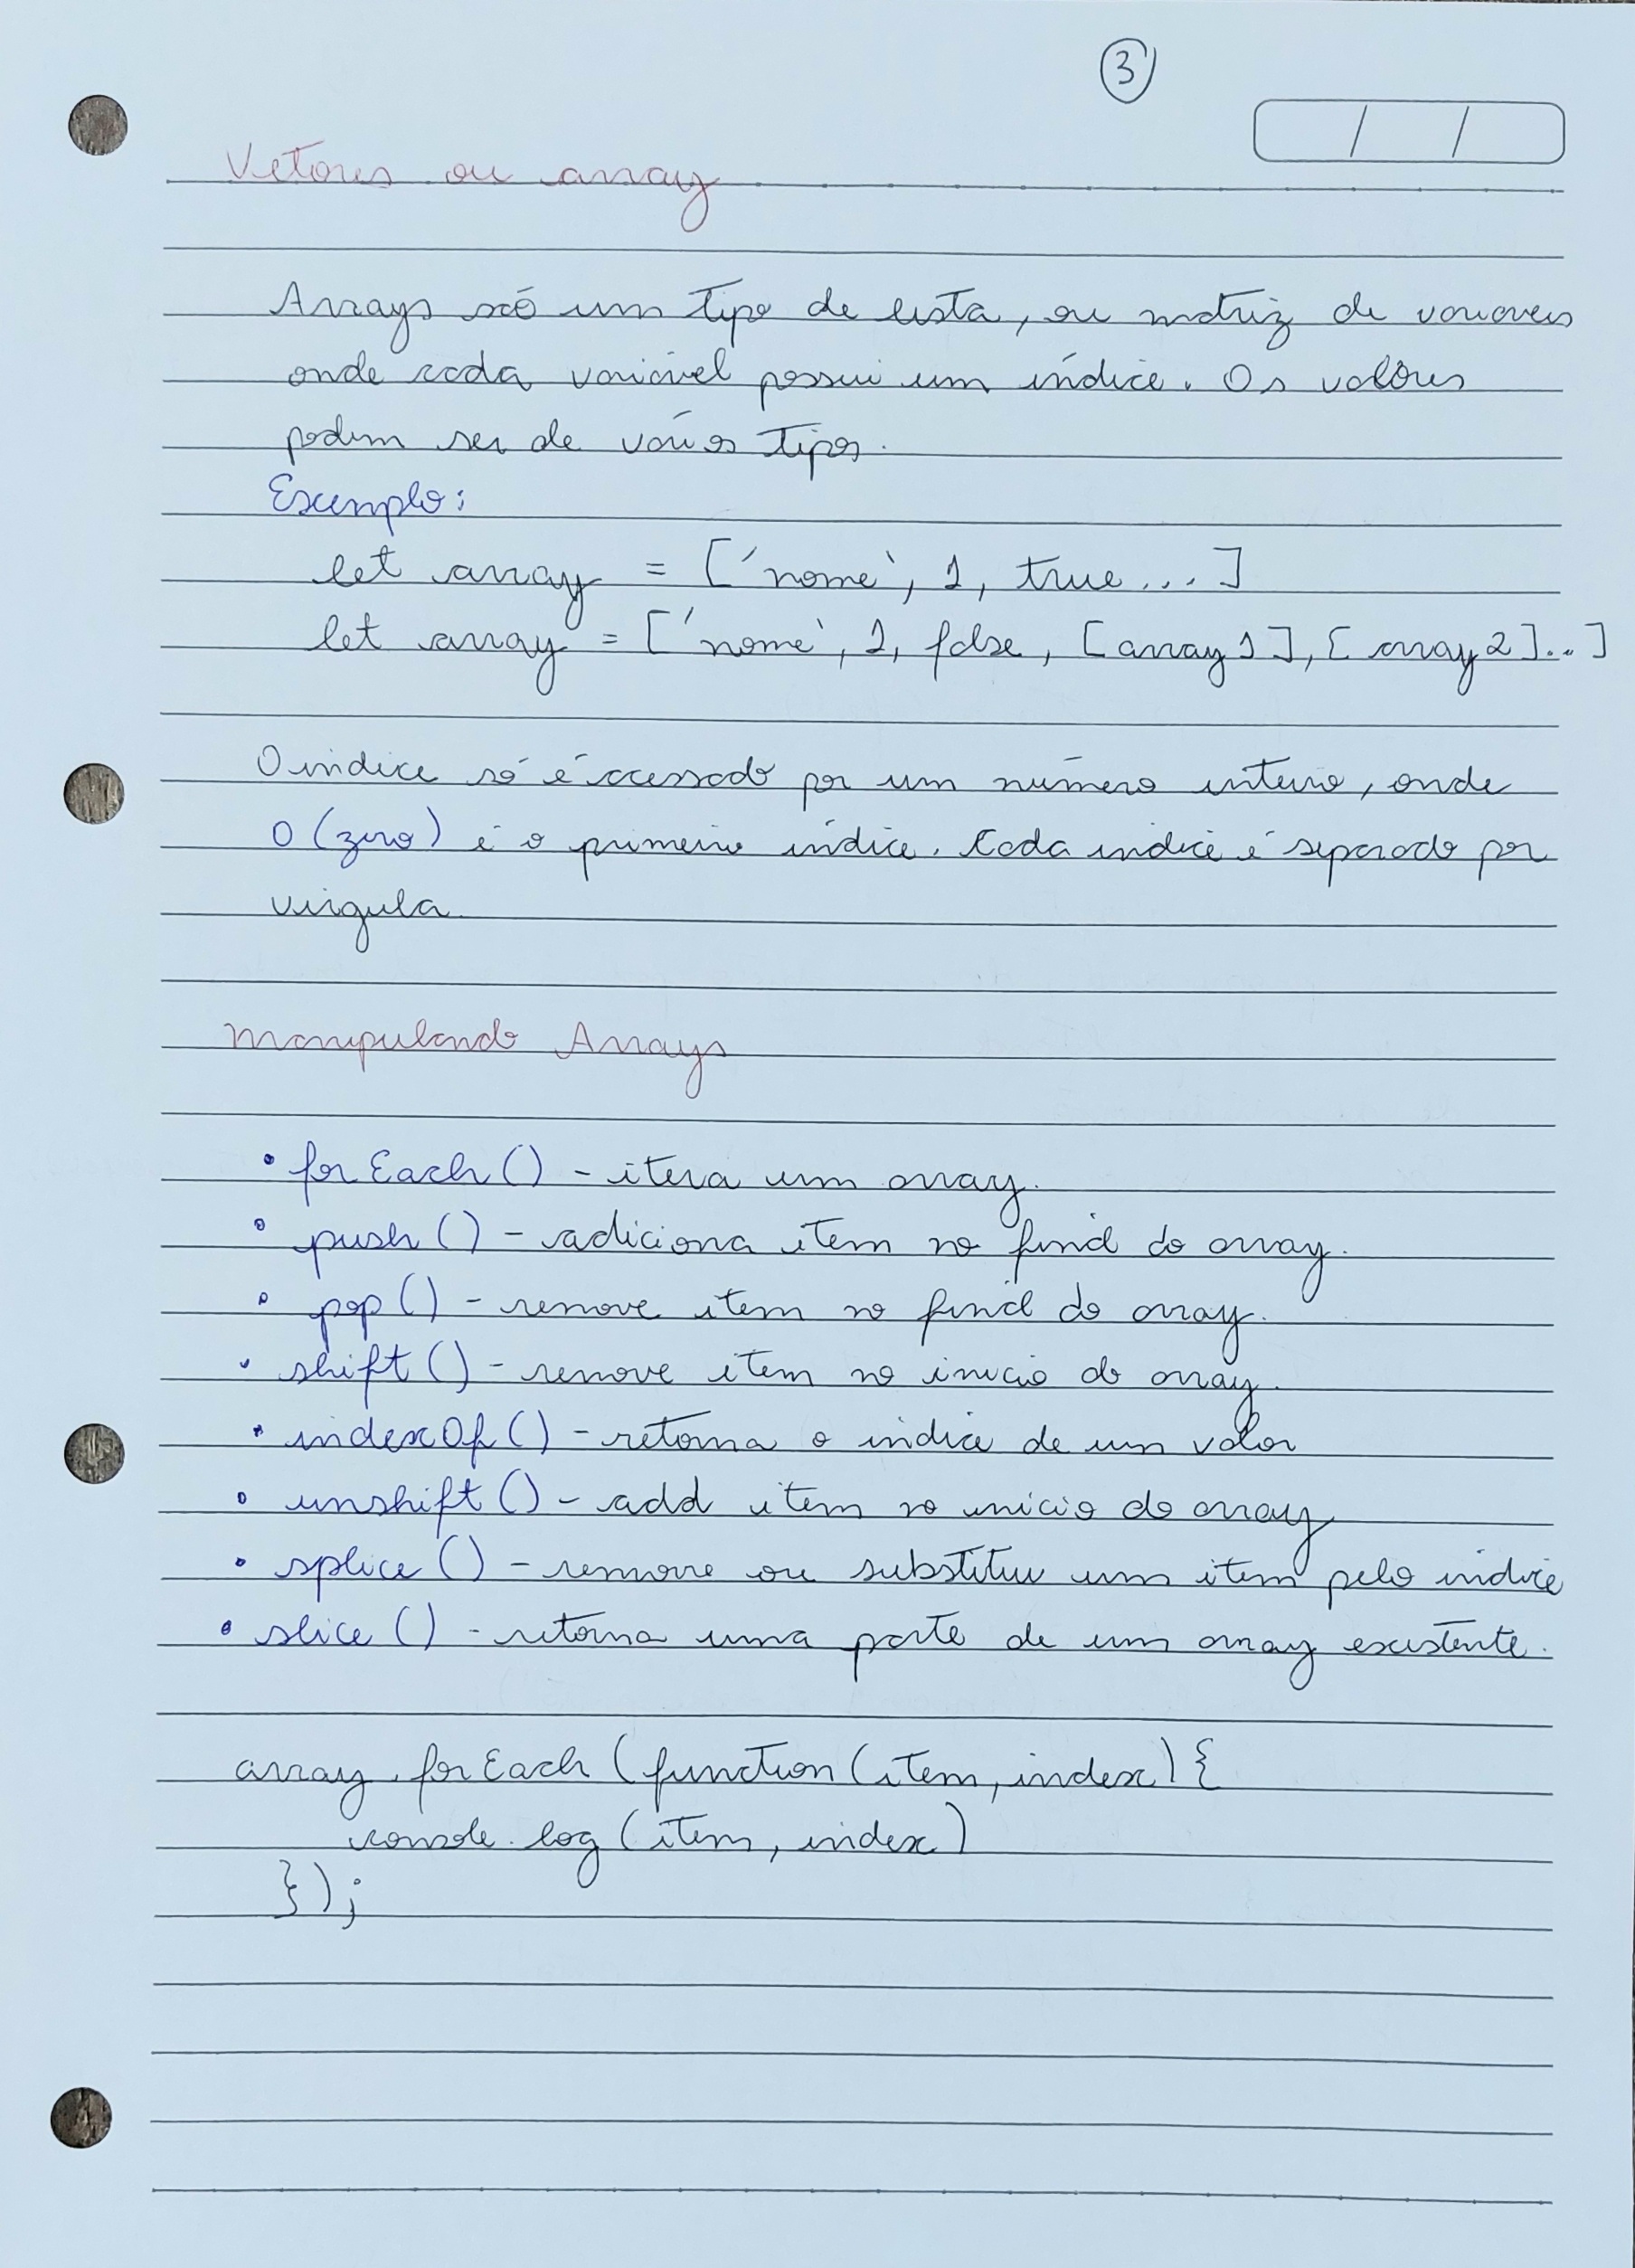 3
/ /
Vetores ou array
Arrays são um tipo de lista, ou matriz de variaveis
onde cada variável possui um índice. Os valores
podem ser de vários tipos.
Exemplo:
let array = ['nome', 1, true...]
let array = ['nome', 1, false, [array1], [array2]...]
O indice só é acessado por um número inteiro, onde
0 (zero) é o primeiro índice. Cada indice é separado por
virgula
Manipulando Arrays
• forEach() - itera um array.
• push() - adiciona item no final do array.
• pop() - remove item no final do array.
• shift() - remove item no inicio do array.
• indexOf() - retorna o indice de um valor
• unshift() - add item no inicio do array
• splice() - remove ou substitui um item pelo indice
• slice() - retorna uma parte de um array existente.
array.forEach(function(item, index){
console.log(item, index)
});